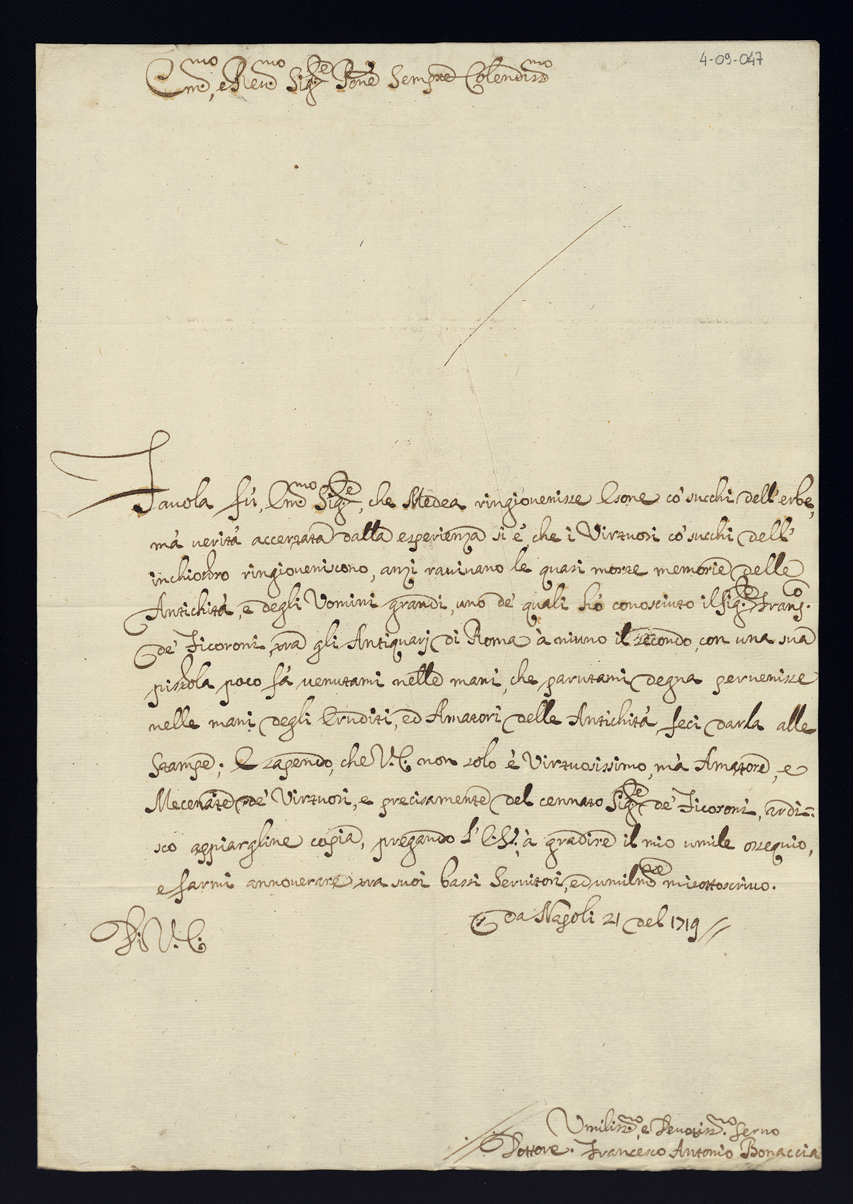 4-09-047
Em̃o, e Reuẽo Sig.re Pñe Sempre Colendiss.mo
Fauola fù, Em̃o Sig.re, che Medea ringiouenisse Esone co' succhi dell'erbe,
mà verità accertata dalla esperienza si è, che i Virtuosi co' succhi dell'
inchiostro ringioueniscono, anzi rauiuano le quasi morte memorie delle
Antichità, e degli Uomini grandi, uno de' quali hò conosciuto il Sig.re Franc.co
de' Ficoroni, trà gli Antiquarj di Roma à niuno il secondo, con una sua
pistola poco fà venutami nelle mani, che parutami degna peruenisse
nelle mani degli Eruditi, ed Amatori delle Antichità, feci darla alle
Stampe; E sapendo, che V.E. non solo è Virtuosissimo, mà Amatore, e
Mecenate de' Virtuosi, e precisamente del cennato Sig.re de' Ficoroni, ardi=
sco inuiargline copia, pregando l'E.S. à gradire il mio umile ossequio,
e farmi annouerare trà suoi bassi Seruitori, ed umilm.te mi sottoscriuo.
Di V.E.
da Napoli 21 del 1719
Umiliss.mo, e Deuotiss.mo Seruo
Dottore Francesco Antonio Bonaccia